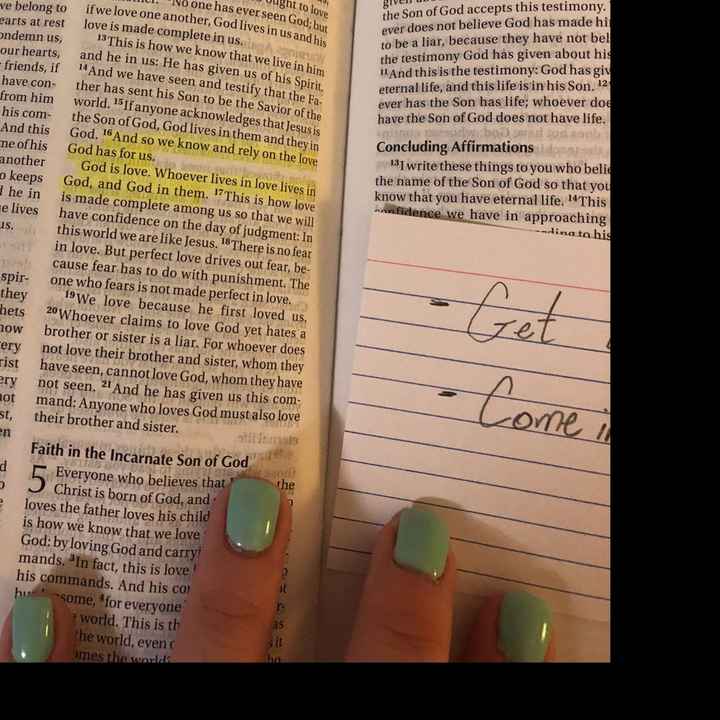 ve belong to
earts at rest
ondemn us,
our hearts,
friends, if
have con-
from him
his com-
And this
me of his
another
o keeps
d he in
e lives
us.
spir-
they
hets
now
ery
rist
ery
not
st,
en
ought to love
No one has ever seen God; but
if we love one another, God lives in us and his
love is made complete in us.
13 This is how we know that we live in him
and he in us: He has given us of his Spirit.
14 And we have seen and testify that the Fa-
ther has sent his Son to be the Savior of the
world. 15 If anyone acknowledges that Jesus is
the Son of God, God lives in them and they in
God. 16 And so we know and rely on the love
God has for us.
God is love. Whoever lives in love lives in
God, and God in them. 17 This is how love
is made complete among us so that we will
have confidence on the day of judgment: In
this world we are like Jesus. 18 There is no fear
in love. But perfect love drives out fear, be-
cause fear has to do with punishment. The
one who fears is not made perfect in love.
19 We love because he first loved us.
20 Whoever claims to love God yet hates a
brother or sister is a liar. For whoever does
not love their brother and sister, whom they
have seen, cannot love God, whom they have
not seen. 21 And he has given us this com-
mand: Anyone who loves God must also love
their brother and sister.
Faith in the Incarnate Son of God
5 Everyone who believes that the
Christ is born of God, and
loves the father loves his child
is how we know that we love
God: by loving God and carry
mands. 3 In fact, this is love
his commands. And his co
some, 4 for everyone
world. This is th
the world, even
mes the world?
the Son of God accepts this testimony.
ever does not believe God has made hi
to be a liar, because they have not bel
the testimony God has given about his
11 And this is the testimony: God has giv
eternal life, and this life is in his Son. 12
ever has the Son has life; whoever doe
have the Son of God does not have life.
Concluding Affirmations
13 I write these things to you who belie
the name of the Son of God so that you
know that you have eternal life. 14 This
confidence we have in approaching
ding to his
- Get
- Come in